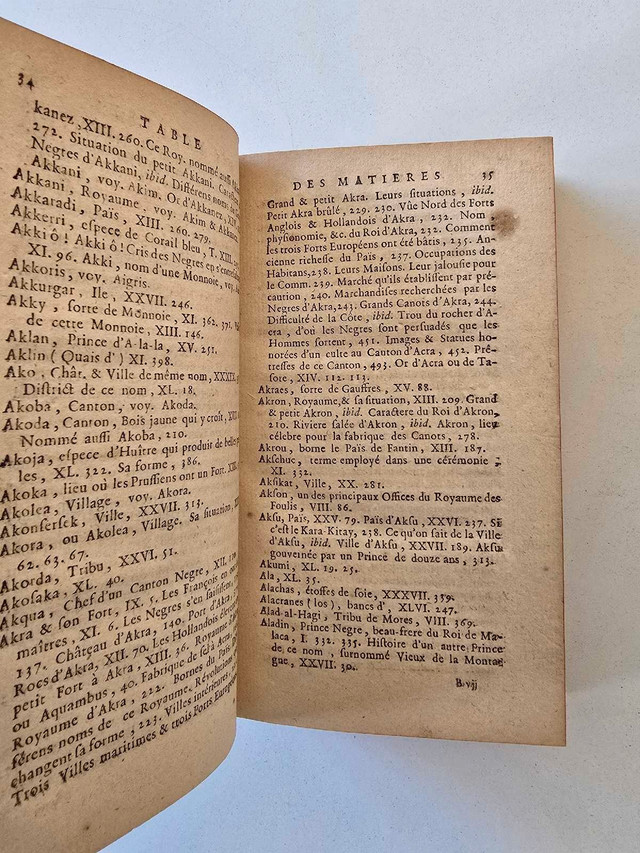 34
TABLE
kanez, XIII. 260. Ce Roy. nommé aussi
272. Situation du petit Akkani. Cara
Negres d'Akkani, ibid. Différens nom
Akkani, voy. Akim. Or d'Akkanez, XIV
Akkani, Royaume. voy. Akim & Akkan
Akkaradi, Païs, XIII. 260. 279.
Akkerri, espece de Corail bleu, T. XIII.
Akki ô! Akki ô! Cris des Negres en s'en
XI. 96. Akki, nom d'une Monnoie, voy.
Akkoris, voy. Aigris.
Akkurgar, Ile, XXVII. 246.
Akky, sorte de Monnoie, XI. 362. 371.
de cette Monnoie, XIII. 146.
Aklan, Prince d'A-la-la, XV. 251.
Aklin (Quais d') XI. 398.
Ako, Chât. & Ville de même nom, XXXIX.
District de ce nom, XL. 18.
Akoba, Canton, voy. Akoda.
Akoda, Canton, Bois jaune qui y croît, XI
Nommé aussi Akoba, 210.
Akoja, espece d'Huître qui produit de belles
les, XL. 322. Sa forme, 386.
Akoka, lieu où les Prussiens ont un Fort. XIII.
Akolea, Village, voy. Akora.
Akonsersek, Ville, XXVII. 313.
Akora, ou Akolea, Village. Sa situation,
62. 63. 67.
Akorda, Tribu, XXVI. 51.
Akosaka, XL. 40.
Akqua, Chef d'un Canton Negre, XII.
Akra & son Fort, IX. 5. Les François en
maîtres, XI. 6. Les Negres s'en saisissent,
137. Château d'Akra, 140. Port d'Akra,
Rocs d'Akra, XII. 70. Les Hollandois élevent
petit Fort à Akra, XIII. 36. Royaume d'A
ou Aquambus, 40. Fabrique de sel à Akra
Royaume d'Akra, 222. Bornes du Païs
férens noms de ce Royaume, Révolution
changent sa forme, 223. Villes intérieures
Trois Villes maritimes & trois Forts Européens
DES MATIERES. 35
Grand & petit Akra. Leurs situations, ibid.
Petit Akra brûlé, 229. 230. Vûe Nord des Forts
Anglois & Hollandois d'Akra, 232. Nom,
physionomie, &c. du Roi d'Akra, 232. Comment
les trois Forts Européens ont été bâtis, 235. An-
cienne richesse du Pais, 237. Occupations des
Habitans, 238. Leurs Maisons. Leur jalousie pour
le Comm. 239. Marché qu'ils établissent par pré-
caution, 240. Marchandises recherchées par les
Negres d'Akra, 243. Grands Canots d'Akra, 244.
Difficulté de la Côte, ibid. Trou du rocher d'A-
cra, d'où les Negres sont persuadés que les
Hommes sortent, 451. Images & Statues ho-
norées d'un culte au Canton d'Acra, 452. Prê-
tresses de ce Canton, 493. Or d'Acra ou de Ta-
sore, XIV. 112. 113.
Akraes, sorte de Gauffres, XV. 88.
Akron, Royaume, & sa situation, XIII. 209. Grand
& petit Akron, ibid. Caractere du Roi d'Akron,
210. Riviere salée d'Akron, ibid. Akron, lieu
célebre pour la fabrique des Canots, 278.
Akrou, borne le Païs de Fantin, XIII. 187.
Akschue, terme employé dans une cérémonie,
XI. 332.
Aksikat, Ville, XX. 281.
Akson, un des principaux Offices du Royaume des
Foulis, VIII. 86.
Aksu, Païs, XXV. 79. Païs d'Aksu, XXVI. 237. Si
c'est le Kara-Kitay, 238. Ce qu'on sait de la Ville
d'Aksu, ibid. Ville d'Aksu, XXVII. 189. Aksu
gouvernée par un Prince de douze ans, 313.
Akumi, XL. 19. 25.
Ala, XL. 35.
Alachas, étoffes de soie, XXXVII. 359.
Alacranes (los), bancs d', XLVI. 247.
Alad-al-Hagi, Tribu de Mores, VIII. 369.
Aladin, Prince Negre, beau-frere du Roi de Ma-
laca, I. 332. 335. Histoire d'un autre Prince
de ce nom, surnommé Vieux de la Montag-
gue, XXVII. 30.
B vij